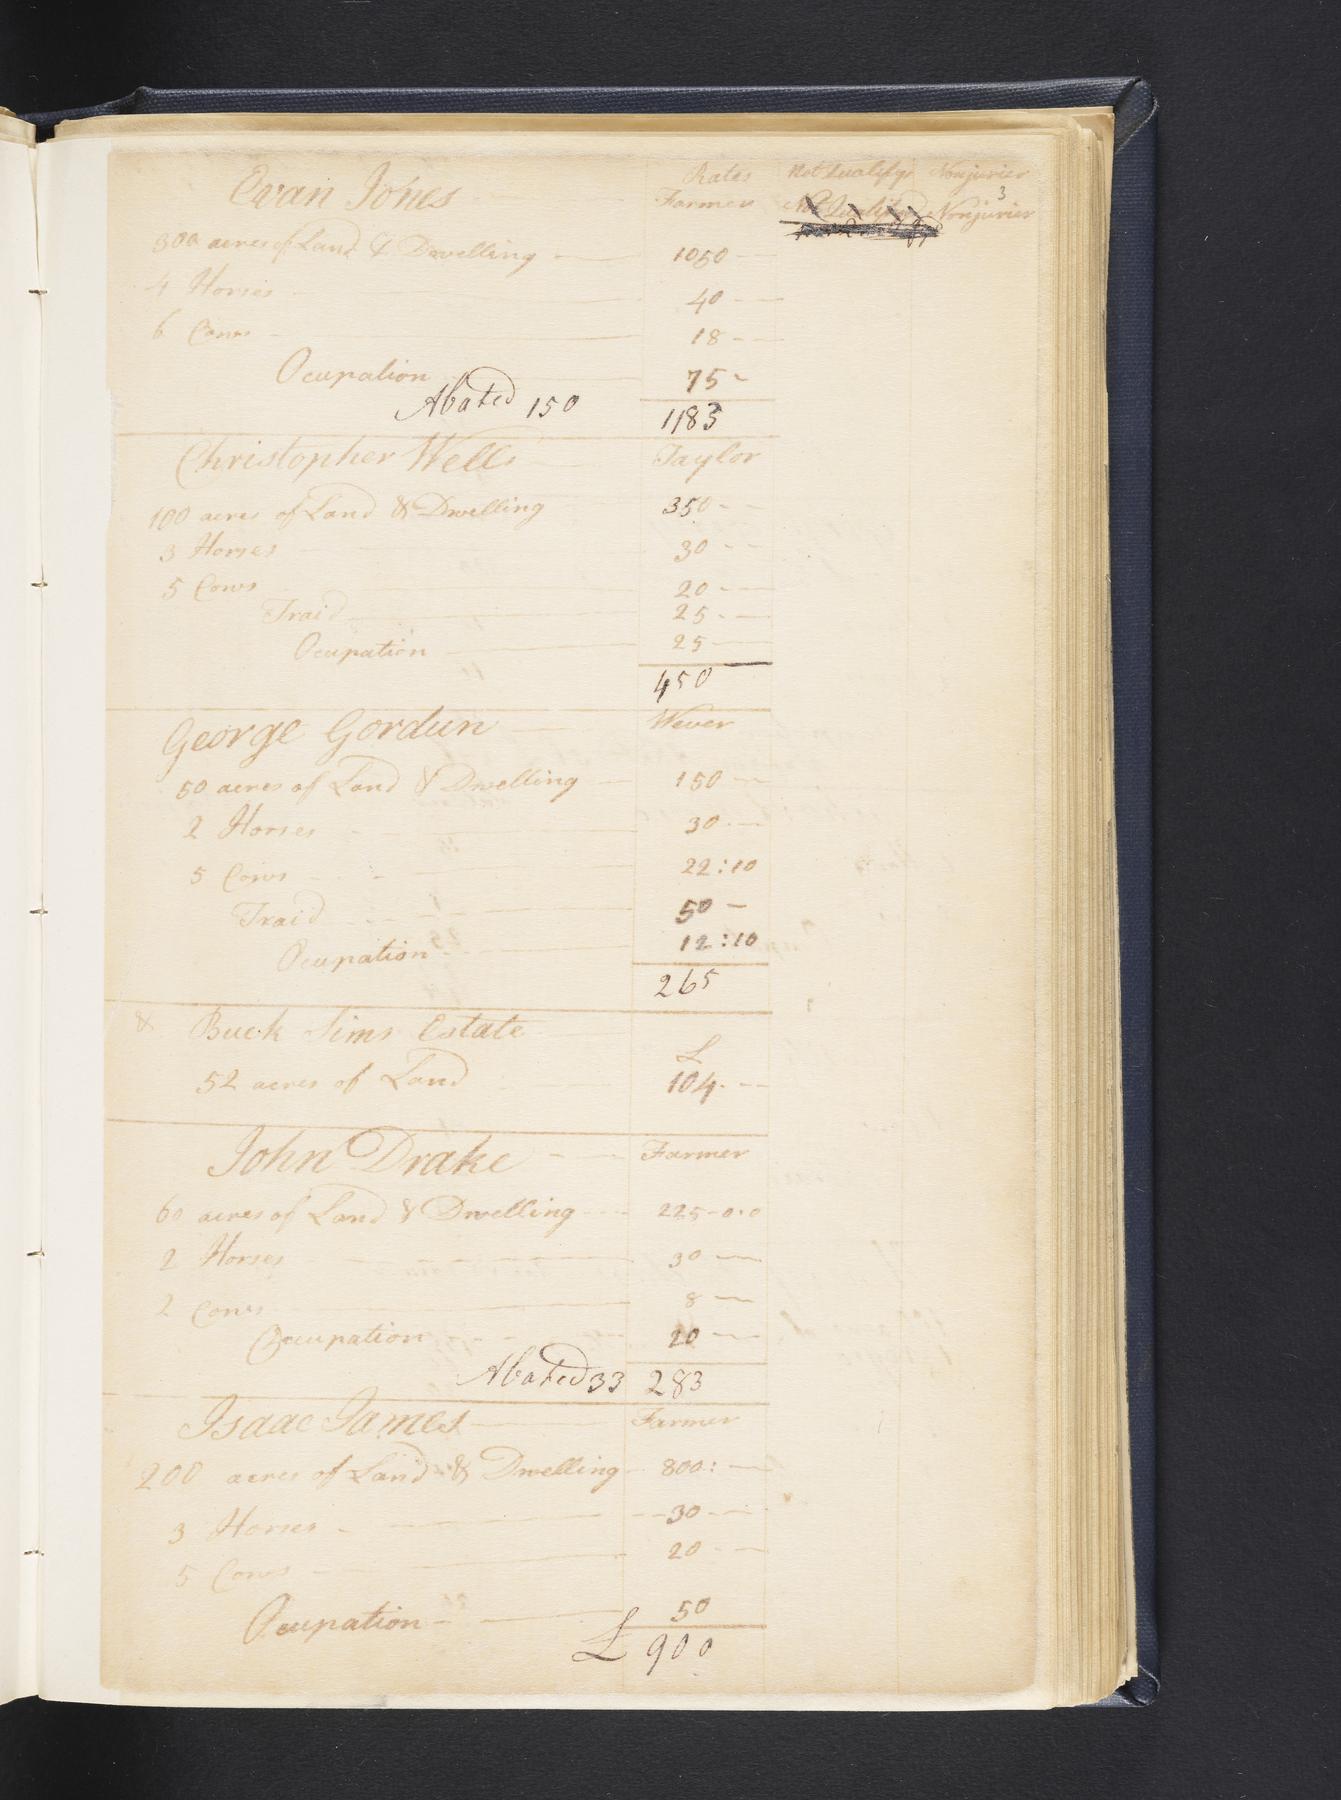 Rates Not Qualifyd Nonjurier
3
Evan Jones Farmer Not Qualifyd Nonjurier
300 acres of Land & Dwelling 1050
4 Horses 40
6 Cows 18
Ocupation 75
Abated 150 1183
Christopher Wells Taylor
100 acres of Land & Dwelling 350
3 Horses 30
5 Cows 20
Traid 25
Ocupation 25
450
George Gordun Wever
50 acres of Land & Dwelling 150
2 Horses 30
5 Cows 22:10
Traid 50
Ocupation 12:10
265
Buck Sims Estate
£
52 acres of Land 104
John Drake Farmer
60 acres of Land & Dwelling 225-0-0
2 Horses 30
2 Cows 8
Occupation 20
Abated 33 283
Isaac James Farmer
200 acres of Land & Dwelling 800:
3 Horses 30
5 Cows 20
Ocupation 50
£ 900